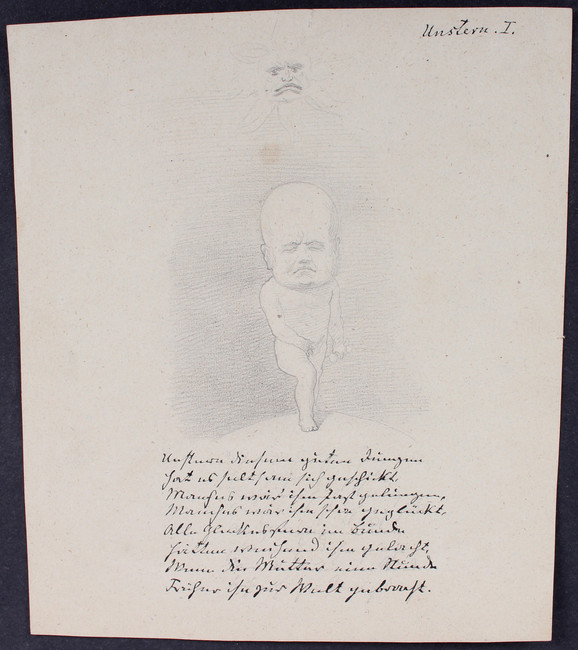 Unstern. I.
Unstern diesem guten Jungen
Hat es seltsam sich geschickt,
Manches wär ihm fast gelungen,
Manches wär ihm schier geglückt.
Alle Glückessterne im Bunde
Hätten weihend ihm gelacht,
Wenn die Mutter eine Stunde
Früher ihn zur Welt gebracht.